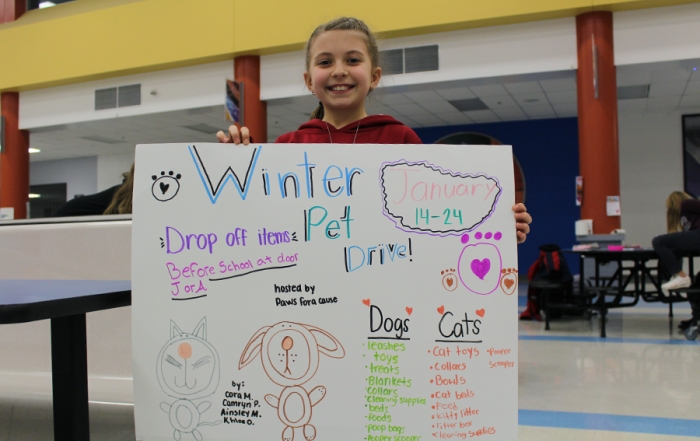 Winter
Pet
Drive!
January
14-24
Drop off items
Before School at door
J or A
hosted by
Paws for a cause
by:
Cora M.
Camryn P.
Ainsley M.
Khloe O.
Dogs
• leashes
• toys
• treats
• Blankets
• collars
• cleaning supplies
• beds
• foods
• poop bags
• Pooper scooper
Cats
• Cat toys
• Collars
• Bowls
• Cat beds
• Food
• Kitty litter
• litter box
• cleaning supplies
• Pooper
Scooper